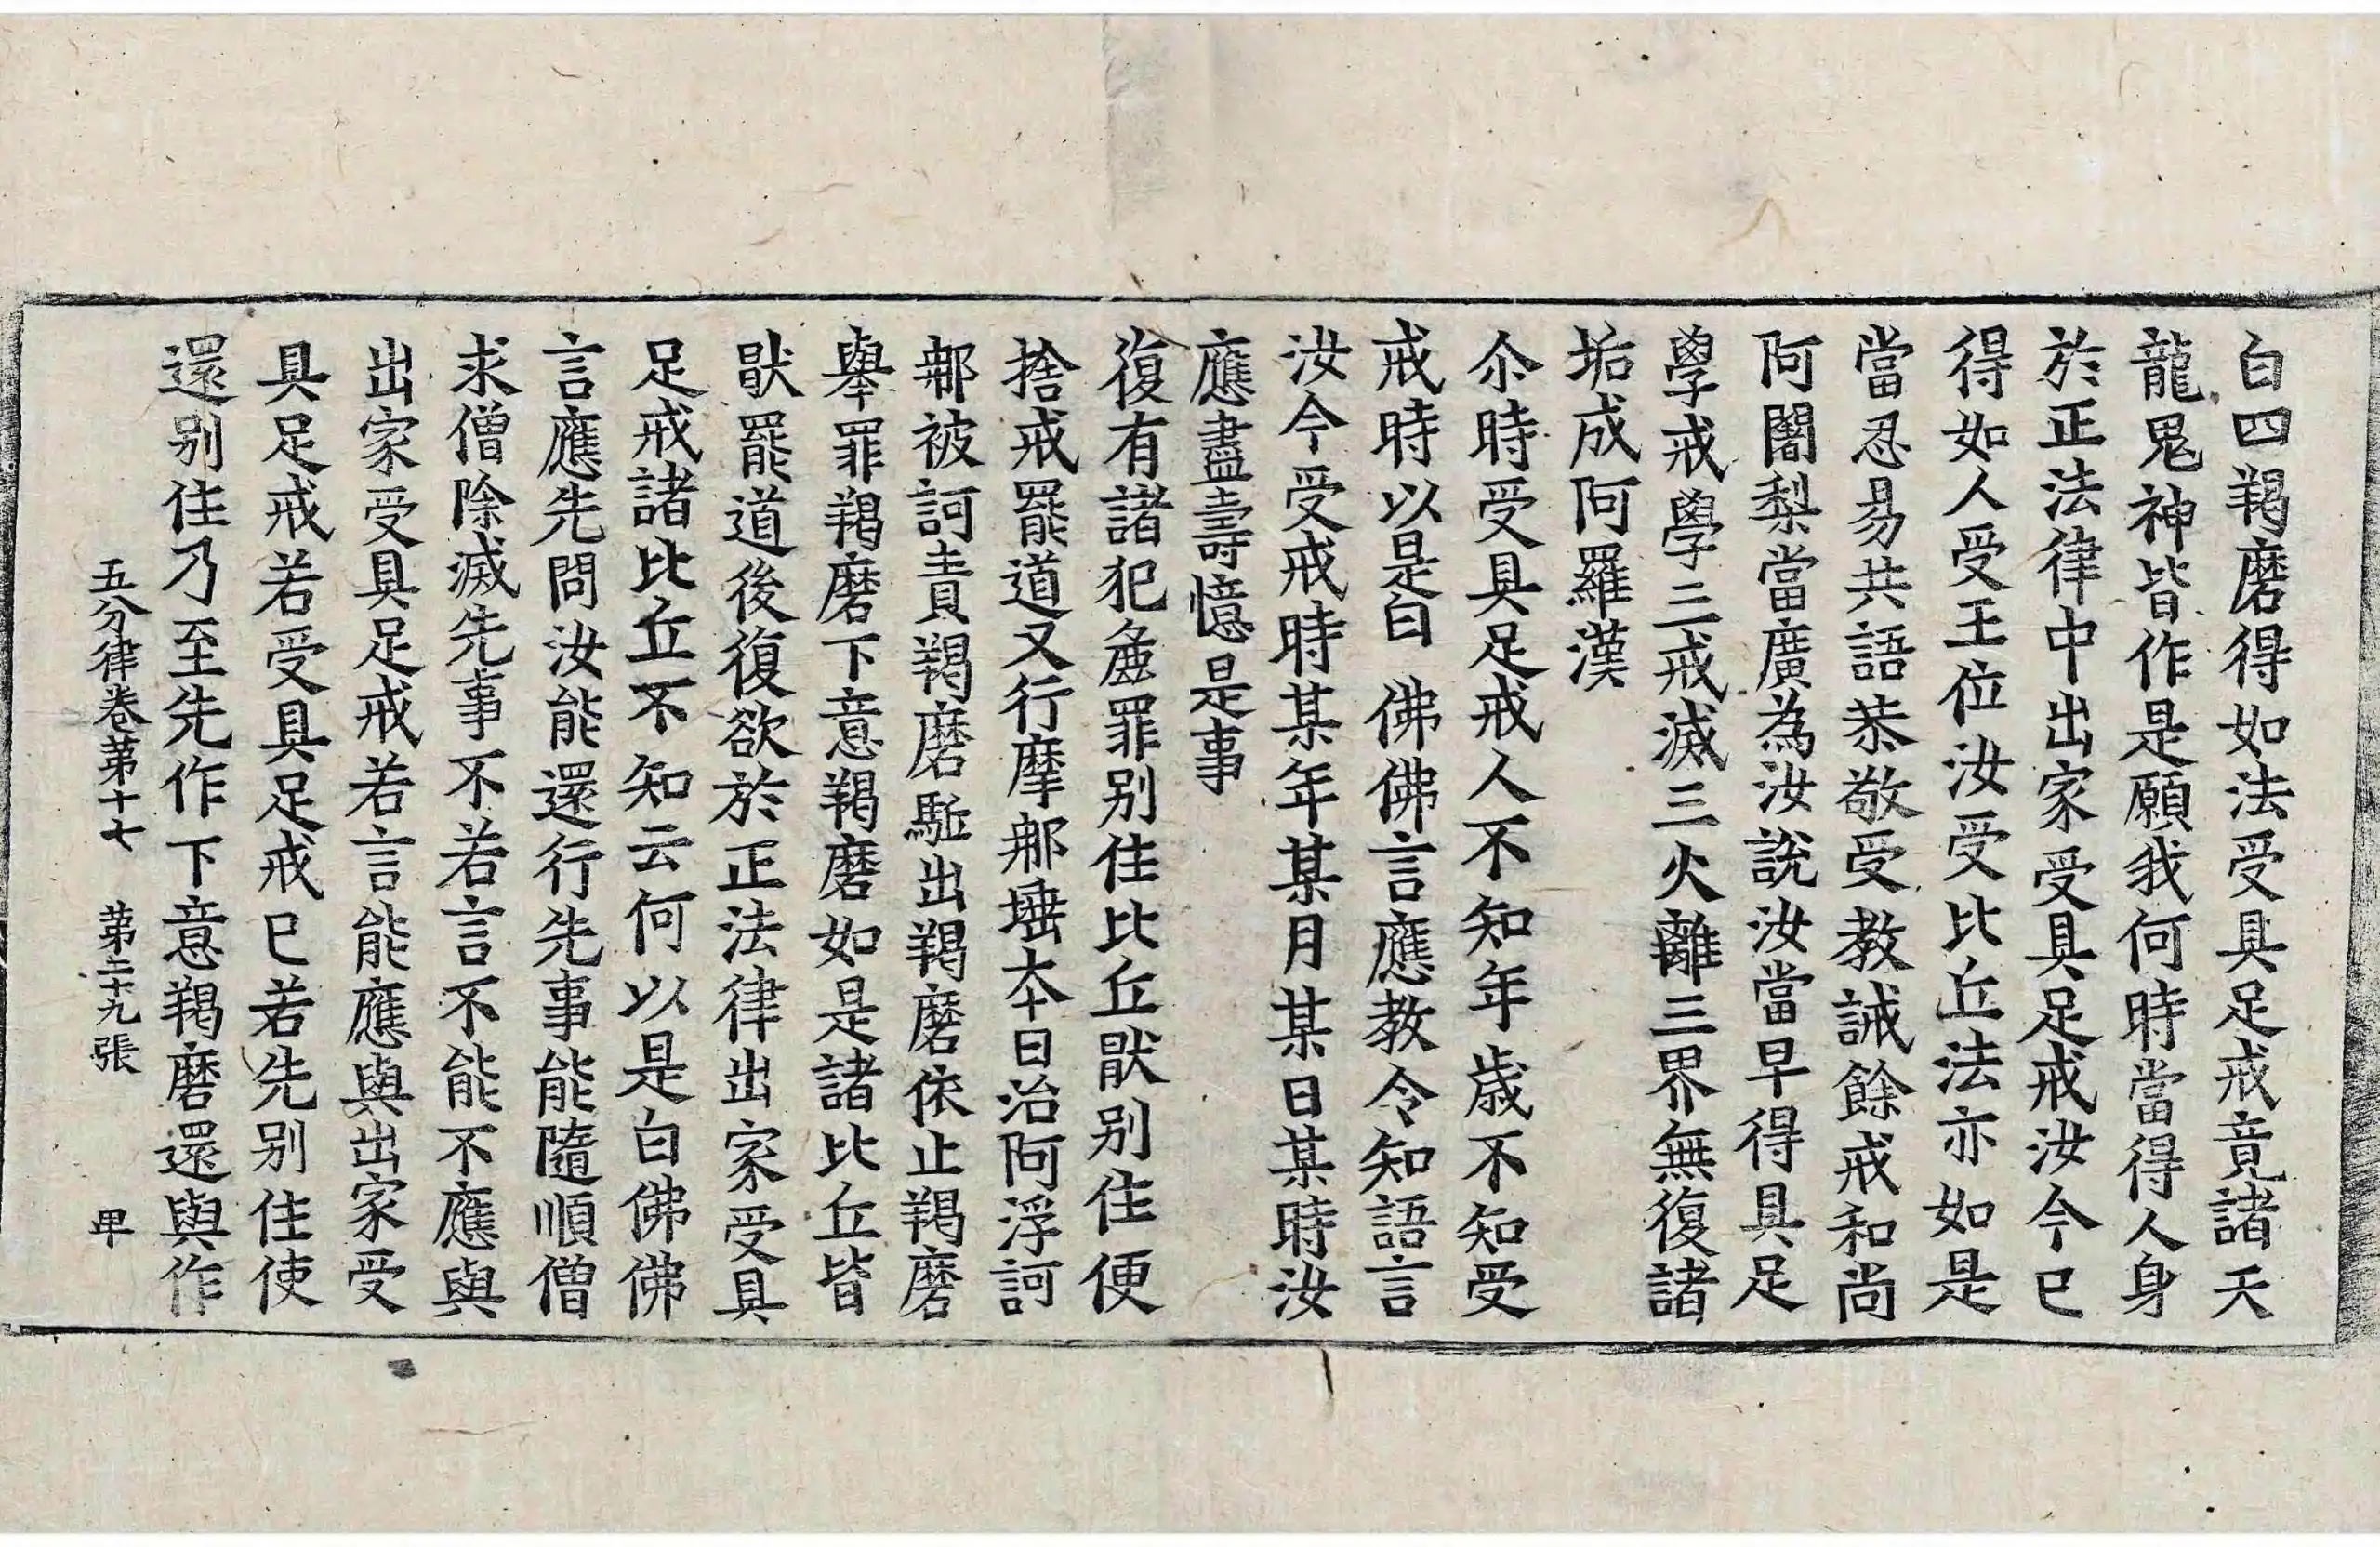 白四羯磨得如法受具足戒竟諸天
龍鬼神皆作是願我何時當得人身
於正法律中出家受具足戒汝今已
得如人受王位汝受比丘法亦如是
當忍易共語恭敬受教誡餘戒和尚
阿闍梨當廣為汝說汝當早得具足
學戒學三戒滅三火離三界無復諸
垢成阿羅漢
尒時受具足戒人不知年歲不知受
戒時以是白 佛佛言應教令知語言
汝今受戒時某年某月某日某時汝
應盡壽憶是事
復有諸犯麁罪别住比丘猒别住便
捨戒罷道又行摩那埵夲日治阿浮訶
那被訶責羯磨駈出羯磨依止羯磨
舉罪羯磨下意羯磨如是諸比丘皆
猒罷道後復欲於正法律出家受具
足戒諸比丘不知云何以是白佛佛
言應先問汝能還行先事能隨順僧
求僧除滅先事不若言不能不應與
出家受具足戒若言能應與出家受
具足戒若受具足戒已若先别住使
還别住乃至先作下意羯磨還與作
五分律卷苐十七 苐二十九張 甲